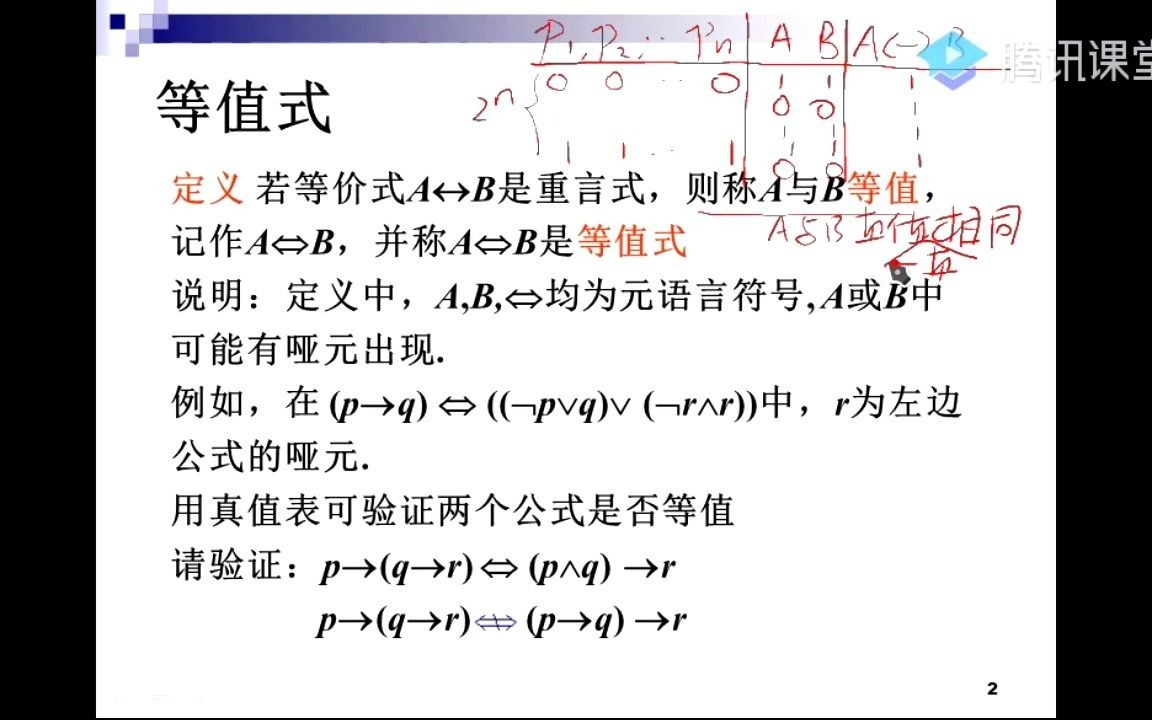 P1, P2, ... Pn A B A↔B
腾讯课堂
0 0 ... 0 1 1 1
2^n
0 0
1 1 ... 1 0 0 1
等值式
定义 若等价式A↔B是重言式，则称A与B等值，
A与B真值相同
记作A⇔B，并称A⇔B是等值式
真
说明：定义中，A,B,⇔均为元语言符号, A或B中
可能有哑元出现.
例如，在 (p→q) ⇔ ((¬p∨q)∨ (¬r∧r))中，r为左边
公式的哑元.
用真值表可验证两个公式是否等值
请验证：p→(q→r) ⇔ (p∧q) →r
p→(q→r) ⇎ (p→q) →r
2